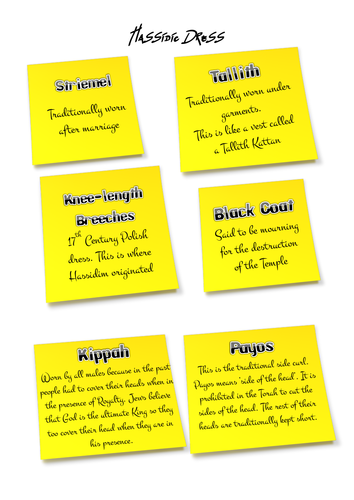 Hassidic Dress
Striemel
Traditionally worn
after marriage
Tallith
Traditionally worn under
garments.
This is like a vest called
a Tallith Kattan
Knee-length
Breeches
17th Century Polish
dress. This is where
Hassidim originated
Black Coat
Said to be mourning
for the destruction
of the Temple
Kippah
Worn by all males because in the past
people had to cover their heads when in
the presence of Royalty. Jews believe
that God is the ultimate King so they
too cover their head when they are in
his presence.
Payos
This is the traditional side curl.
Payos means 'side of the head'. It is
prohibited in the Torah to cut the
sides of the head. The rest of their
heads are traditionally kept short.